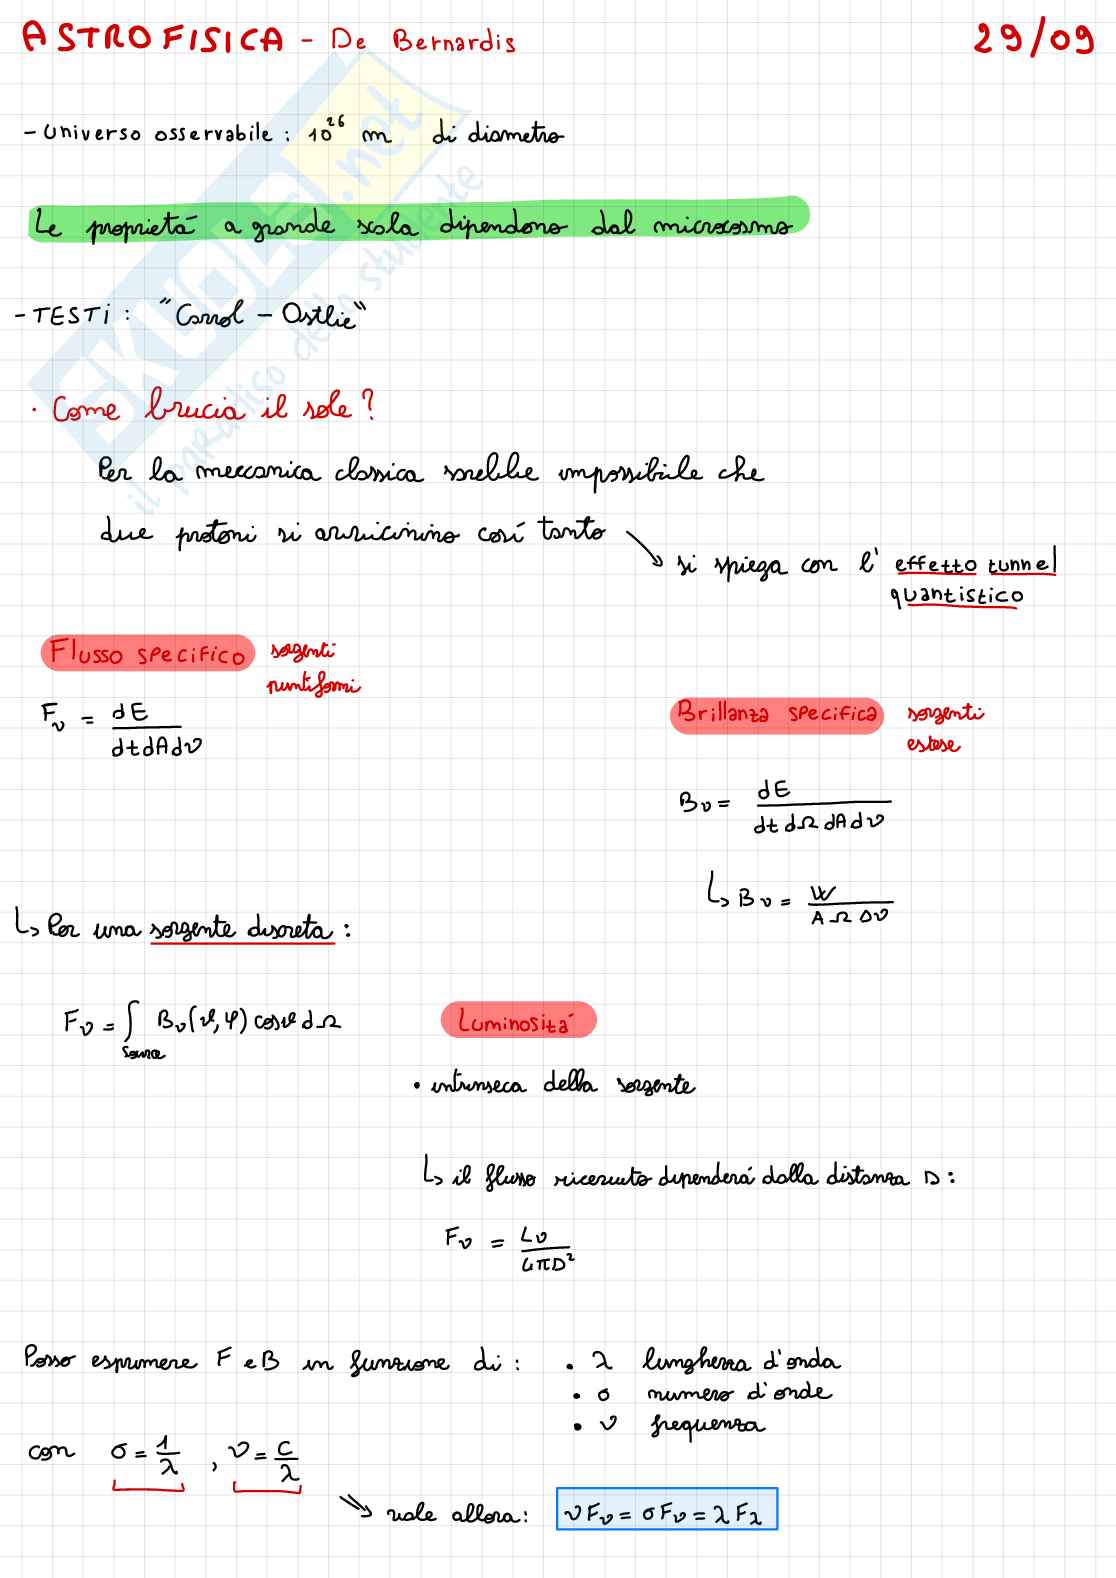 ASTROFISICA - De Bernardis 29/09
- Universo osservabile : 10²⁶ m di diametro
Le proprietà a grande scala dipendono dal microcosmo
- TESTi : "Carrol - Ostlie"
· Come brucia il sole?
Per la meccanica classica sarebbe impossibile che
due protoni si avvicinino così tanto
si spiega con l' effetto tunnel
quantistico
Flusso specifico sorgenti
puntiformi
F_ν = dE / dt dA dν
Brillanza specifica sorgenti
estese
B_ν = dE / dt dΩ dA dν
↳ B_ν = W / A Ω Δν
↳ Per una sorgente discreta :
F_ν = ∫_source B_ν(ϑ,φ) cosϑ dΩ
Luminosità
• intrinseca della sorgente
↳ il flusso ricevuto dipenderà dalla distanza D :
F_ν = L_ν / 4πD²
Posso esprimere F e B in funzione di : • λ lunghezza d'onda
• σ numero d'onde
• ν frequenza
con σ = 1/λ , ν = c/λ
⇘ vale allora : νF_ν = σF_ν = λF_λ
SKUOLA.net
il paradiso dello studente